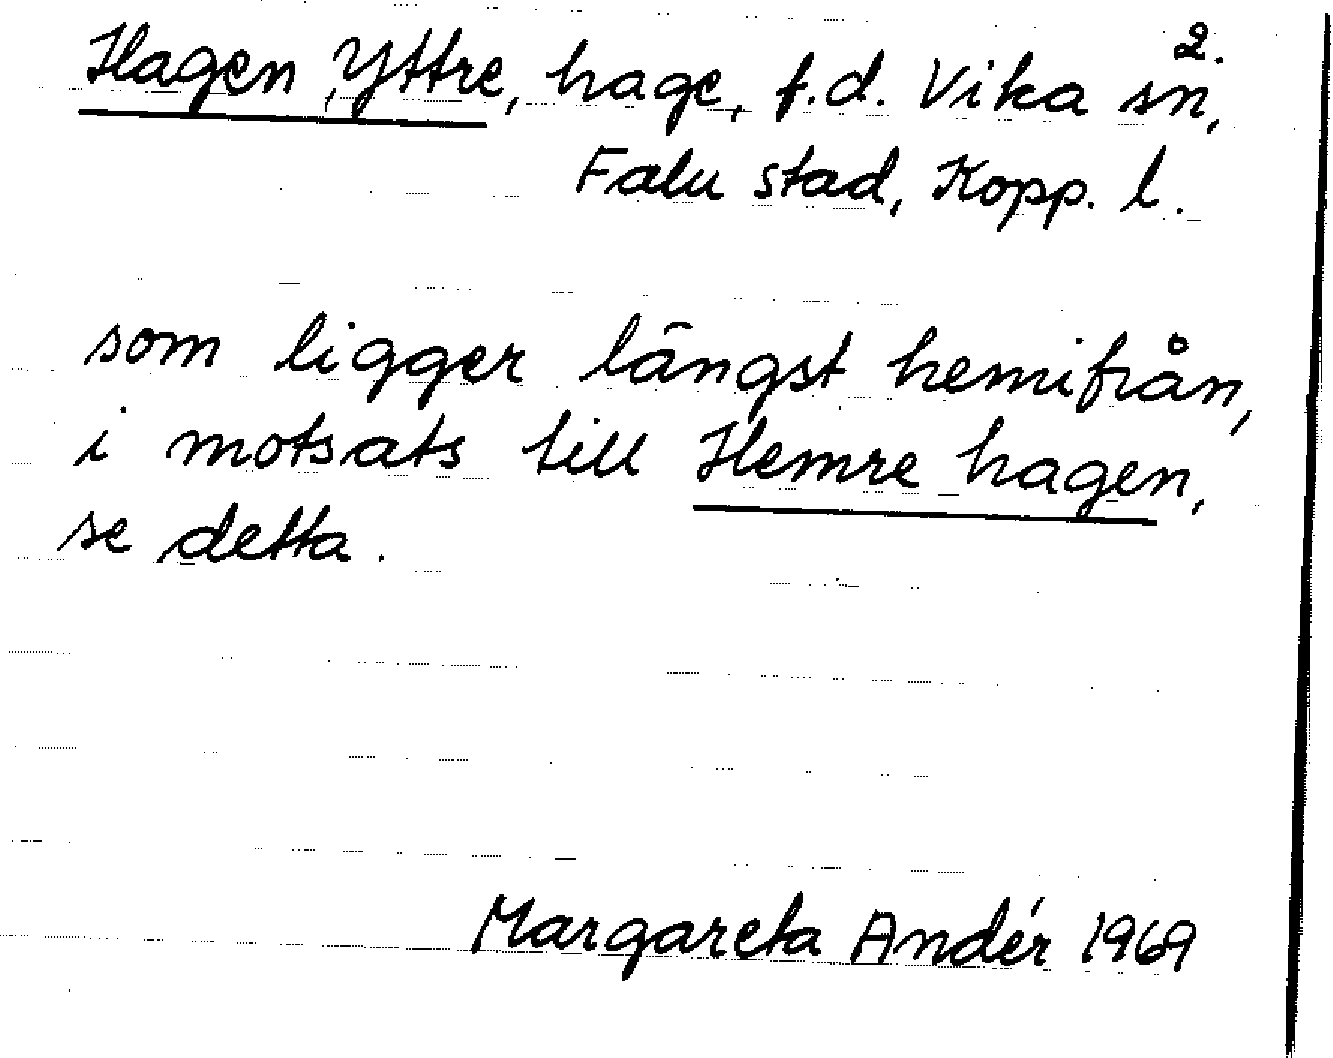 2.
Hagen, Yttre, hage, f.d. Vika sn,
Falu stad, Kopp. l.
som ligger längst hemifrån,
i motsats till Hemre hagen,
se detta.
Margareta Andér 1969